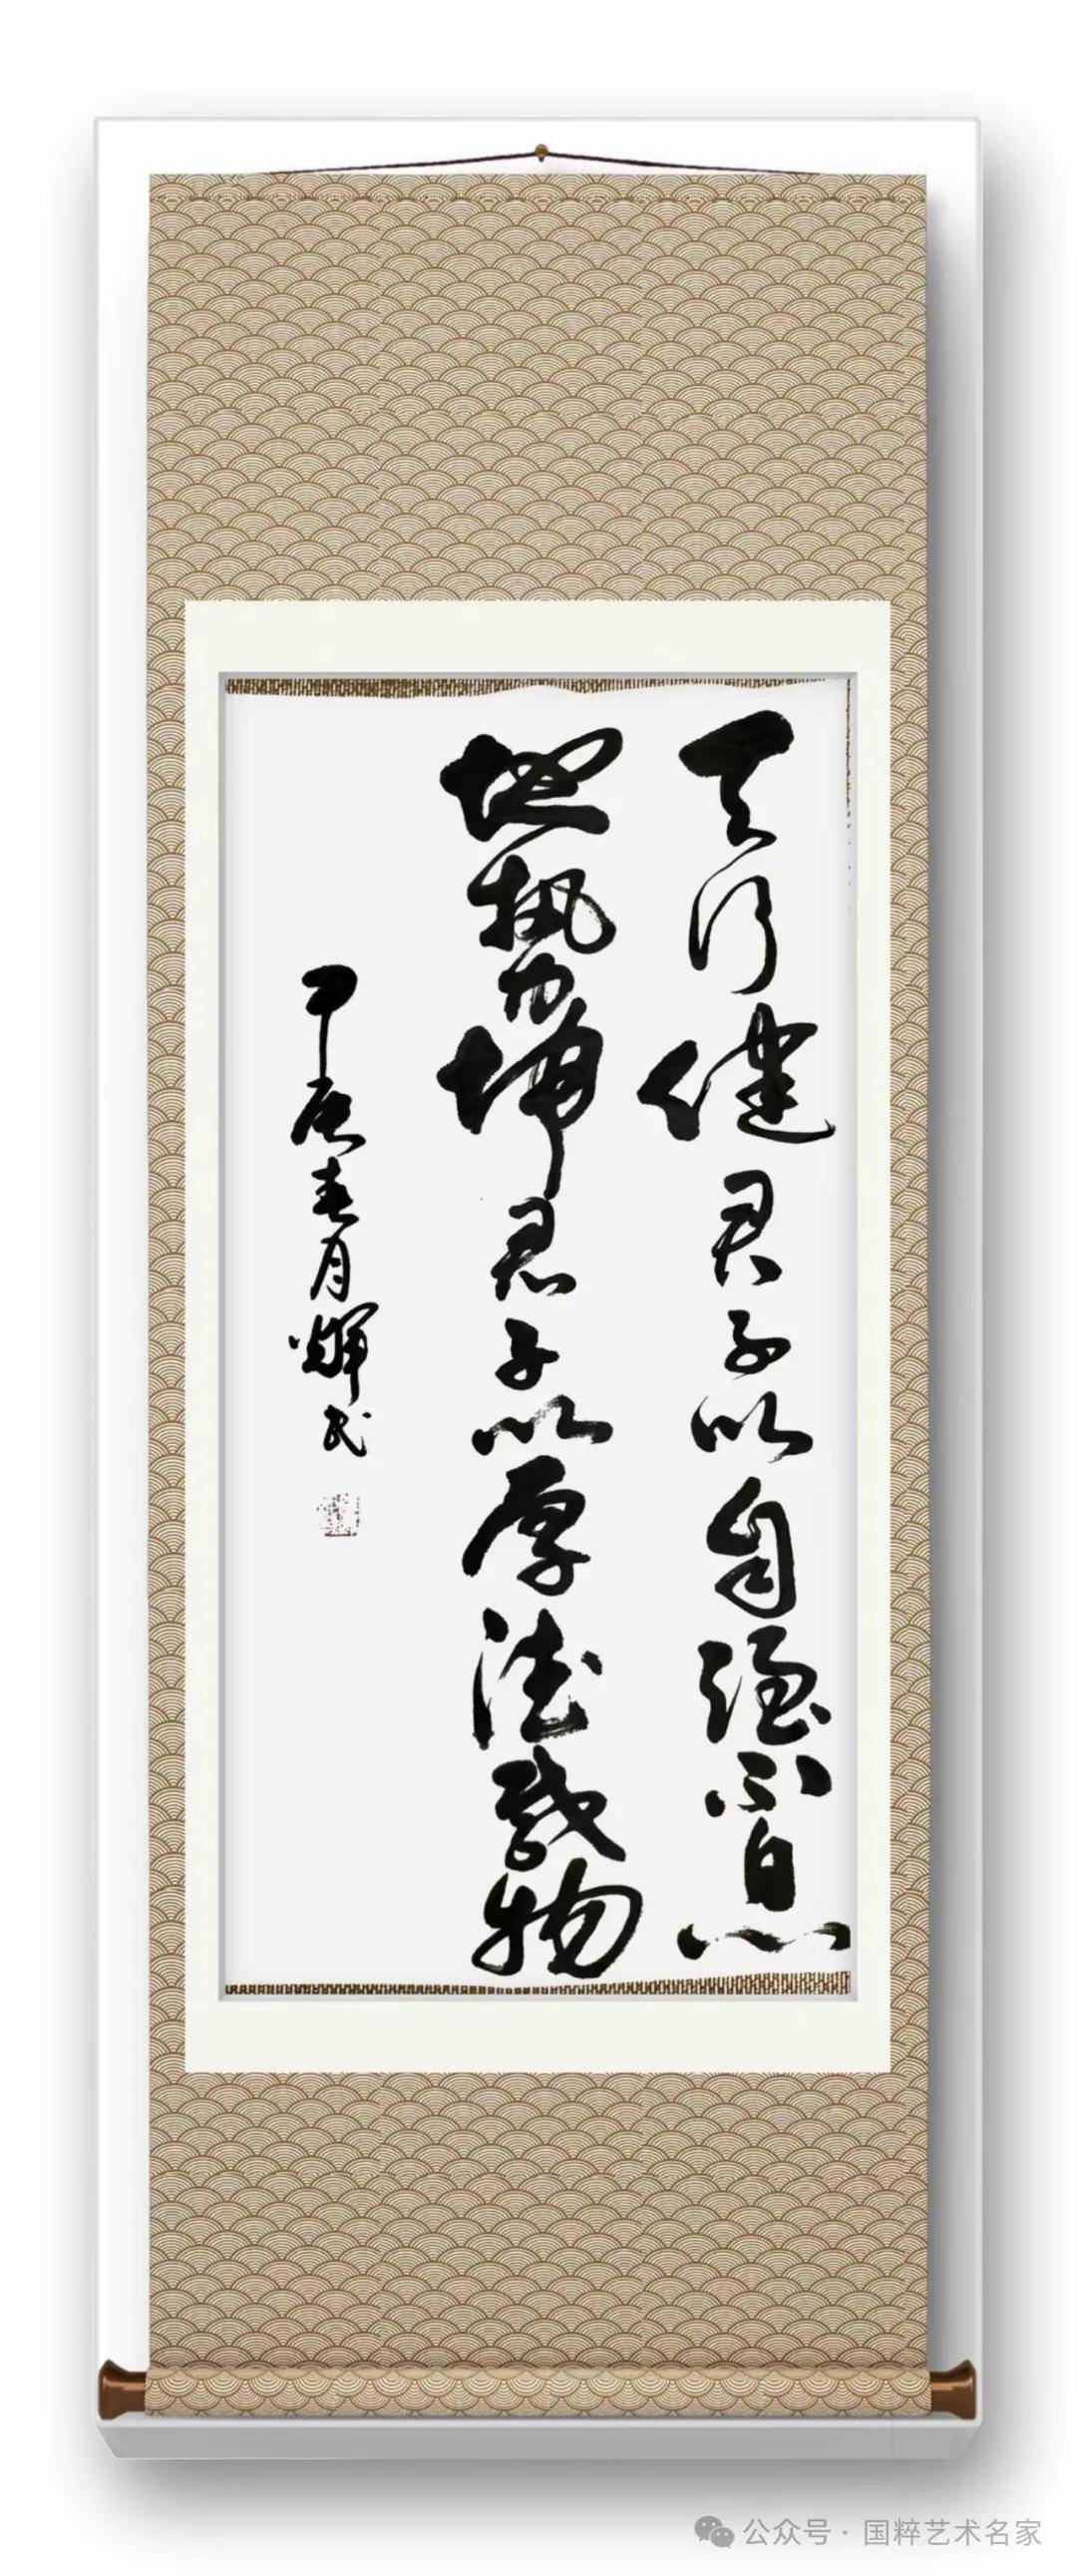 天行健君子以自强不息
地势坤君子以厚德载物
甲辰春月辉武
公众号·国粹艺术名家